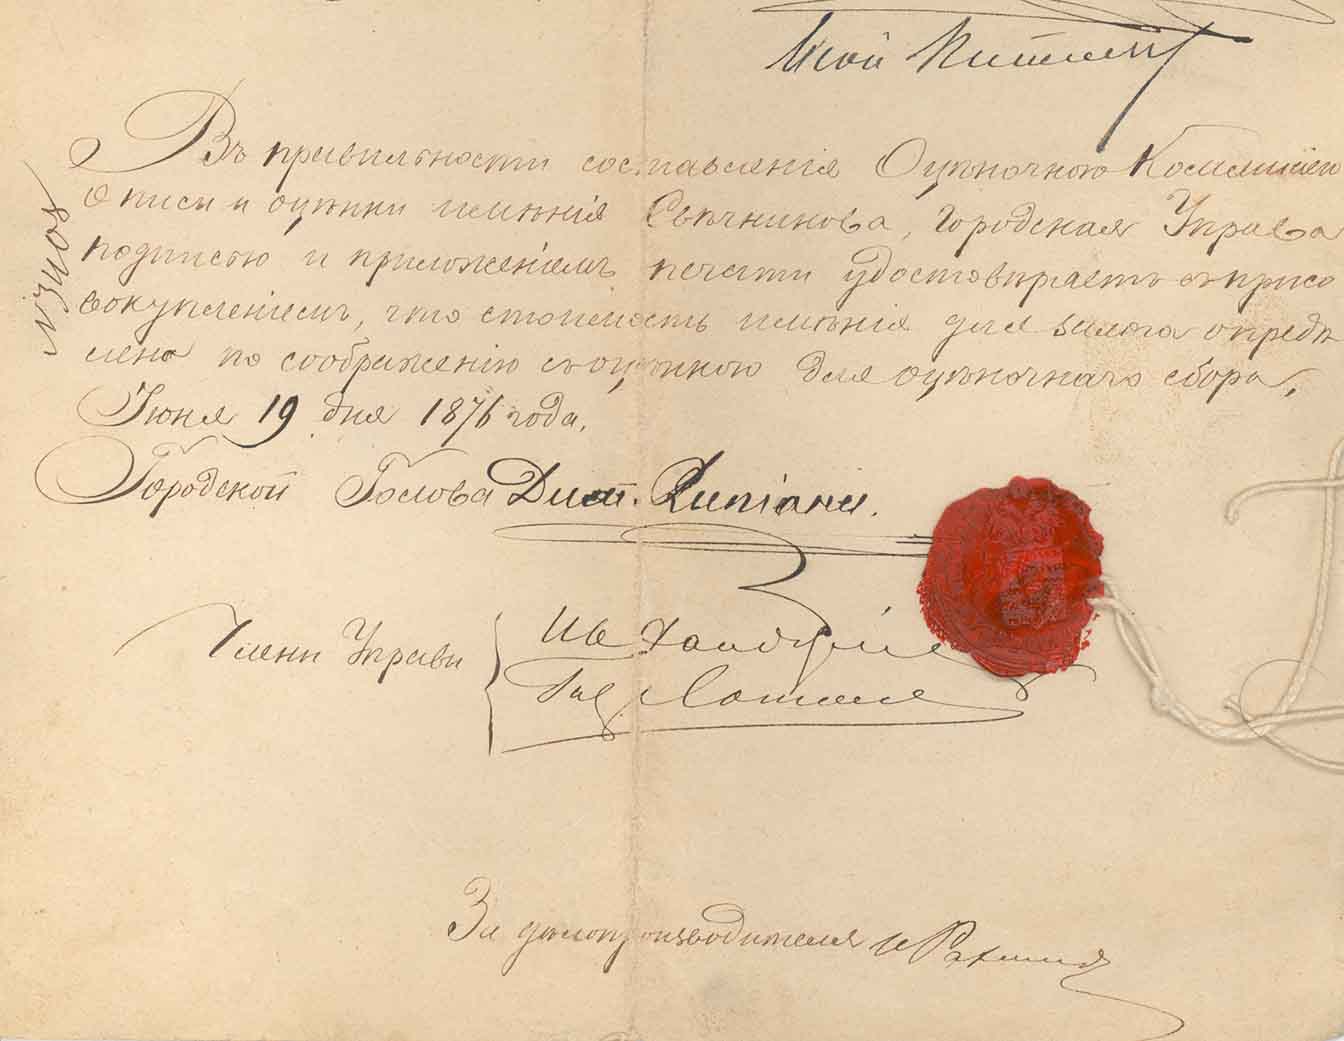 Въ правильности составленія Оцѣночною Коммисіею
описи и оцѣнки имѣнія Свѣчникова, Городская Управа
подписью и приложеніемъ печати удостовѣряетъ съ присо
вокупленіемъ, что стоимость имѣнія для залога опредѣ
лена по соображенію съ оцѣнкою для оцѣночнаго сбора,
Іюня 19 дня 1876 года.
Городской Голова Дим.
Члены Управы
За дѣлопроизводителя